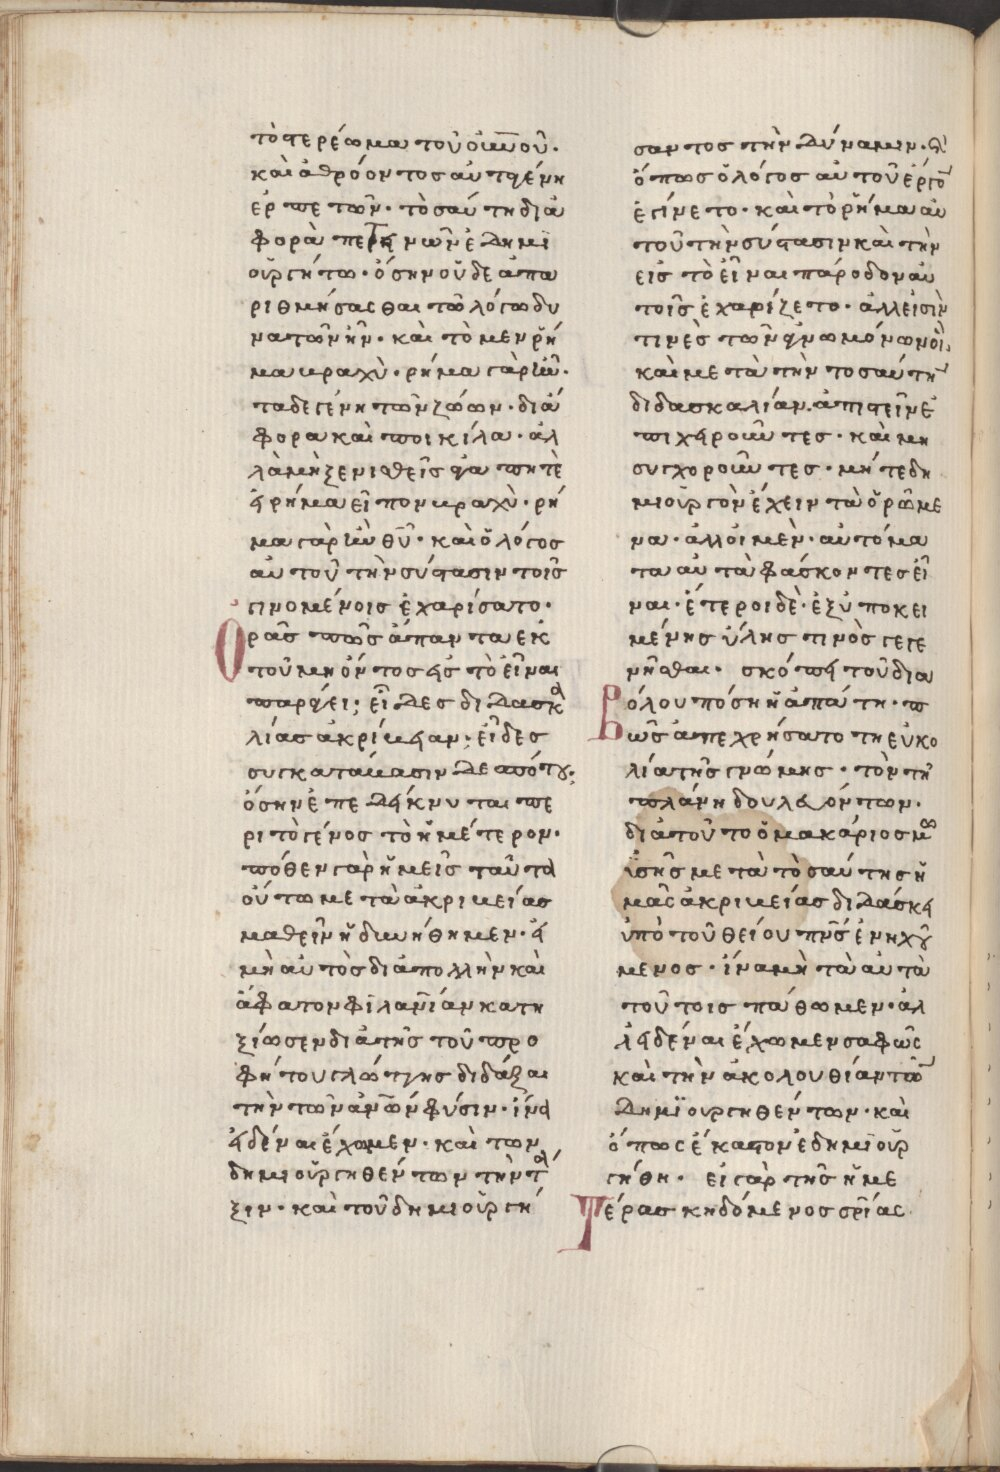 τὸ στερέωμα τοῦ οὐ͞νοῦ.
καὶ ἀθρόον τοσαῦτα γένη
ἑρπετῶν· τοσαύτη δια
φορὰ πετεινῶν ἐδημι
ουργήτω· ὅσην οὐδε ἀπα
ριθμήσασθαι τῶ λόγω δυ
νατῶν ἦν· καὶ τὸ μεν ῥῆ
μα βραχὺ· ρῆμα γὰρ ἓν·
τα δε γένη τῶν ζώων· διά
φορα καὶ ποικίλα· ἀλ
λὰ μὴ ξενισθεῖς ἀγαπητὲ
εἰ ρῆμα εἶπον βραχὺ· ρῆ
μα γὰρ ἦν θῦ· καὶ ὁ λόγος
αὐτοῦ τὴν σύστασιν τοῖς
γινομένοις ἐχαρίσατο·
Ορᾶς πῶς ἅπαντα εκ
τοῦ μὴ ὄντος εἰς τὸ εἶναι
παρήγει; εἶδες διδασκα
λίας ἀκρίβειαν; εἶδες
συγκατάβασιν δεσπότου;
ὅσην ἐπεδείκνυται πε
ρι τὸ γένος τὸ ἡμέτερον·
πόθεν γὰρ ἡμεῖς ταῦτα
οὕτω μετὰ ἀκριβείας
μαθεῖν ἠδυνήθημεν· εἰ
μὴ αὐτὸς διὰ πολλὴν καὶ
ἄφατον φιλανίαν κατη
ξίωσεν διὰ τῆς τοῦ προ
φήτου γλώττης διδάξαι
τὴν τῶν ἀνῶν φύσιν· ἵνα
εἰδέναι ἔχομεν· καὶ των
δημιουργηθέντων τὴν τά
ξιν· καὶ τοῦ δημιουργή
σαντος τὴν δύναμιν· καὶ
ὅπως ὁ λόγος αὐτοῦ ἔργον
ἐγίνετο· καὶ τὸ ῥῆμα αὐ
τοῦ τὴν σύστασιν καὶ τὴν
εἰς τὸ εἶναι πάροδον αὐ
τοῖς ἐχαρίζετο· ἀλλ εἰσὶν
τινὲς τῶν ἀγνωμόνων οἳ,
καὶ μετὰ τὴν τοσαύτην
διδασκαλίαν· ἀπιστεῖν ἐ
πιχειροῦντες· καὶ μη
συγχοροῦντες· μήτε δη
μιουργὸν ἔχειν τὰ ὁρῶμε
να· ἀλλ οἱ μὲν· αὐτόμα
τα αὐτὰ φάσκοντες εἶ
ναι· ἕτεροι δὲ· ἐξ ὑποκει
μένης ὕλης τινὸς γεγε
νῆσθαι· σκόπει τοῦ δια
Βόλου πόση ἡ ἀπάτη· π
ῶς ἀπεχρήσατο τη εὐκο
λία τῆς γνώμης· τῶν τῇ
πλάνη δουλευόντων·
διὰ τοῦτο ὁ μακάριος μω
ϋσῆς μετὰ τὸσαύτης ἡ
μᾶς ἀκριβείας διδάσκει
ὑπὸ τοῦ θείου πνς ἐνηχού
μενος· ἵνα μὴ τὰ αὐτὰ
τούτοις πάθωμεν· ἀλ
λ εἰδέναι ἔχωμεν σαφῶς
καὶ τὴν ἀκολουθίαν τῶν
δημϊουργηθέντων· καὶ
ὅπως ἕκαστον ἐδημιουρ
γήθη· εἰ γὰρ τῆς ἡμε
Τέρας κηδόμενος σρίας